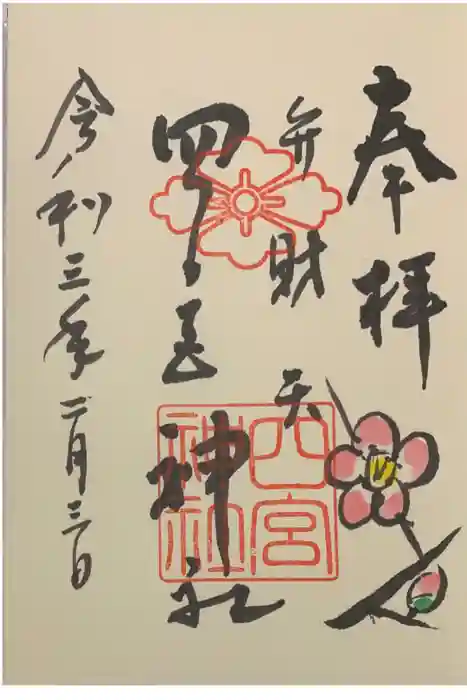 奉拝
弁財天
四宮神社
令和三年二月三日
四宮
神社